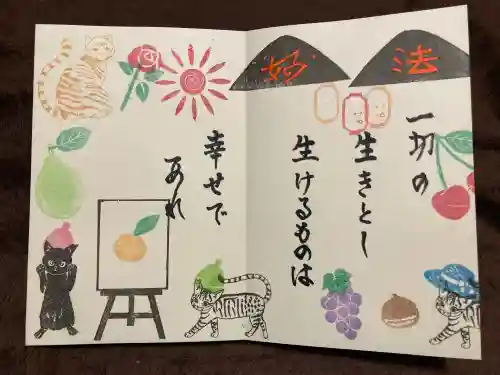 妙法
一切の
生きとし
生けるものは
幸せで
あれ
WINING